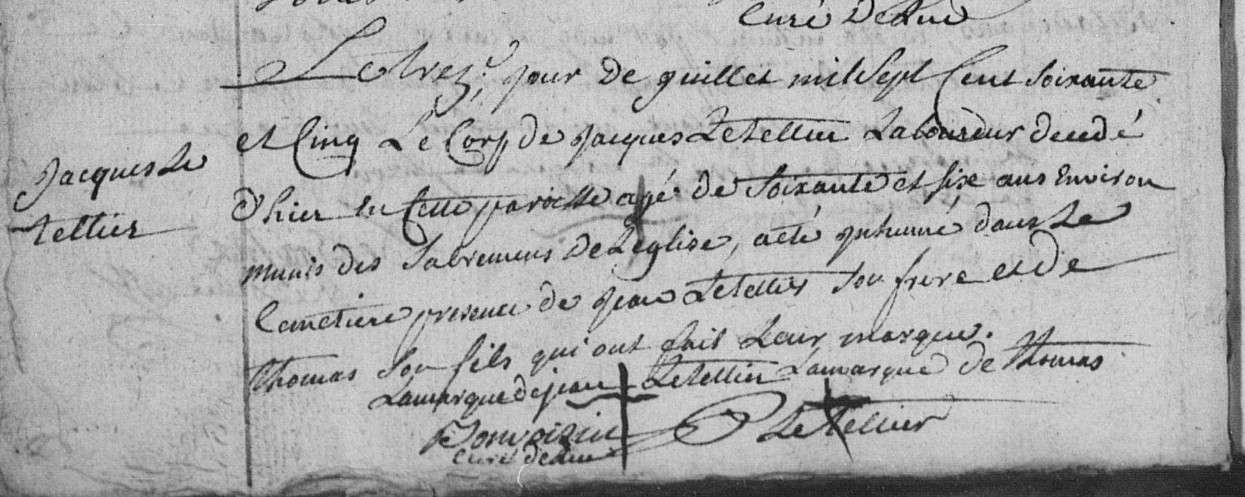 Curé de Rue
Letreze.e jour de guillet mil Sept Cent Soixante
et Cinq Le Corp de Jacques Letellier Laboureur decedé
Jacques Le
tellier
d'hier en Cette paroisse agé de Soixante et six ans Environ
munis des Sacremens de Leglise, a eté Inhumé dans Le
Cemetiere presence de Jean Letellier Son frere et de
Thomas Son fils qui ont fait Leur marque.
Lamarque de jean Letellier Lamarque de Thomas
Bonvoisin Le Tellier
Curé de Rue